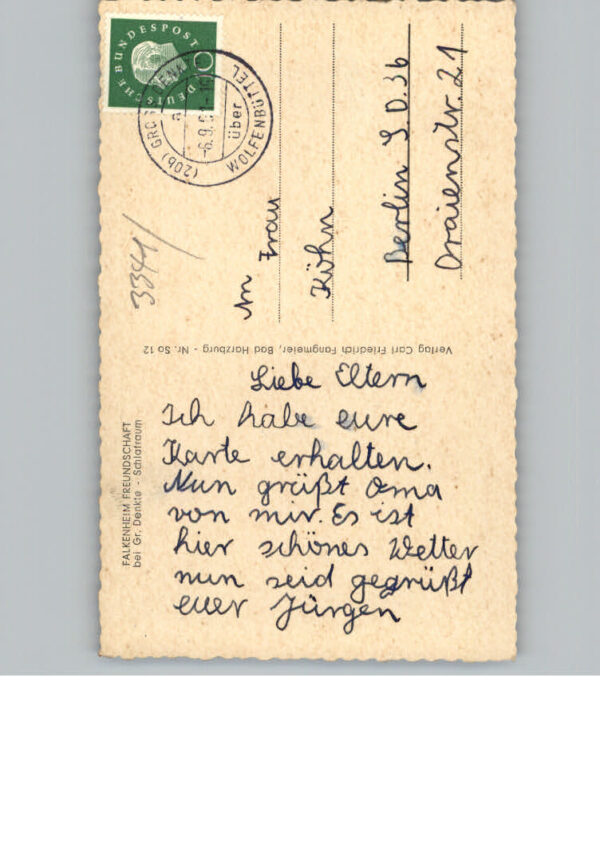 DEUTSCHE BUNDESPOST
10
(20b) GROSS DENKTE
über
WOLFENBÜTTEL
a
-6.9.
3344/
An Frau
Köhn
Berlin S.O.36
Oraienstr. 21
Verlag Carl Friedrich Fangmeier, Bad Harzburg - Nr. So 12
FALKENHEIM FREUNDSCHAFT
bei Gr. Denkte - Schlafraum
Liebe Eltern
Ich habe eure
Karte erhalten.
Nun grüßt Oma
von mir. Es ist
hier schönes Wetter
nun seid gegrüßt
euer Jürgen